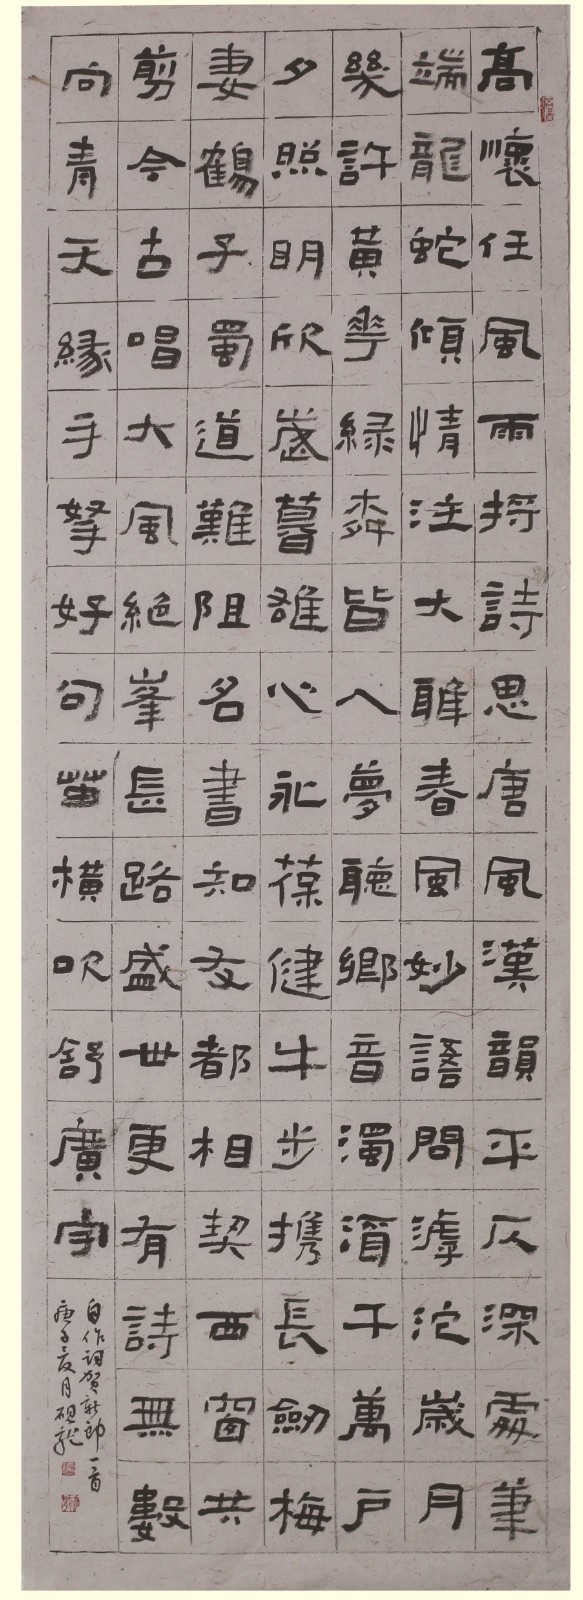 高懷任風雨捋詩思唐風漢韻平仄深處筆
端龍蛇傾情注大雅春風妙語問滹沱歲月
幾許黃華綠皆入夢聽鄉音濁清千萬戶
夕照明欣歲暮雄心永葆健牛步攜長劍梅
妻鶴子蜀道難阻名書知友都相契西窗共
剪今古唱大風絕峯長路盛世更有詩無數
向青天緣手拏好句笛橫吹舒廣宇
自作詞賀新郎一首
庚子夏月硯龍